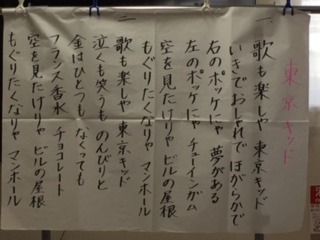 東京キッド
一、歌も楽しや 東京キッド
いきでおしゃれで ほがらかで
右のポッケにゃ 夢がある
左のポッケにゃ チュインガム
空を見たけりゃ ビルの屋根
もぐりたくなりゃ マンホール
二 歌も楽しや 東京キッド
泣くも笑うも のんびりと
金はひとつも なくっても
フランス香水 チョコレート
空を見たけりゃ ビルの屋根
もぐりたくなりゃ マンホール